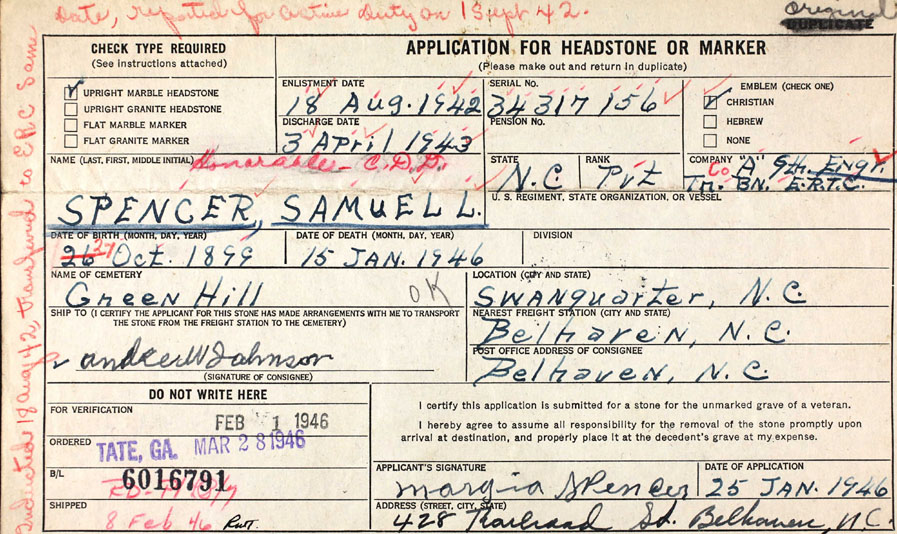 Date, reported for active duty on 1 Sept 42.
Original
DUPLICATE
Inducted 18 Aug 42, transferred to ERC Same
CHECK TYPE REQUIRED
(See instructions attached)
UPRIGHT MARBLE HEADSTONE
UPRIGHT GRANITE HEADSTONE
FLAT MARBLE MARKER
FLAT GRANITE MARKER
APPLICATION FOR HEADSTONE OR MARKER
(Please make out and return in duplicate)
ENLISTMENT DATE
18 Aug. 1942
SERIAL NO.
34 317 156
EMBLEM (CHECK ONE)
CHRISTIAN
HEBREW
NONE
DISCHARGE DATE
3 April 1943
PENSION NO.
NAME (LAST, FIRST, MIDDLE INITIAL)
Honorable - C.D.D.
SPENCER, SAMUEL L.
STATE
N.C.
RANK
Pvt
COMPANY
Co "A" 9th. Engr.
Tn. BN. E.R.T.C.
U. S. REGIMENT, STATE ORGANIZATION, OR VESSEL
DATE OF BIRTH (MONTH, DAY, YEAR)
26 27 Oct. 1899
DATE OF DEATH (MONTH, DAY, YEAR)
15 JAN. 1946
DIVISION
NAME OF CEMETERY
Green Hill
OK
LOCATION (CITY AND STATE)
SWANquarter, N.C.
SHIP TO (I CERTIFY THE APPLICANT FOR THIS STONE HAS MADE ARRANGEMENTS WITH ME TO TRANSPORT
THE STONE FROM THE FREIGHT STATION TO THE CEMETERY)
NEAREST FREIGHT STATION (CITY AND STATE)
Belhaven, N.C.
Johnson
(SIGNATURE OF CONSIGNEE)
POST OFFICE ADDRESS OF CONSIGNEE
Belhaven, N.C.
DO NOT WRITE HERE
FOR VERIFICATION
FEB 1 1946
ORDERED
TATE, GA. MAR 28 1946
B/L
6016791
SHIPPED
8 Feb 46
I certify this application is submitted for a stone for the unmarked grave of a veteran.
I hereby agree to assume all responsibility for the removal of the stone promptly upon
arrival at destination, and properly place it at the decedent's grave at my expense.
APPLICANT'S SIGNATURE
Margia Spencer
DATE OF APPLICATION
25 JAN. 1946
ADDRESS (STREET, CITY, STATE)
428 Railroad St. Belhaven, N.C.